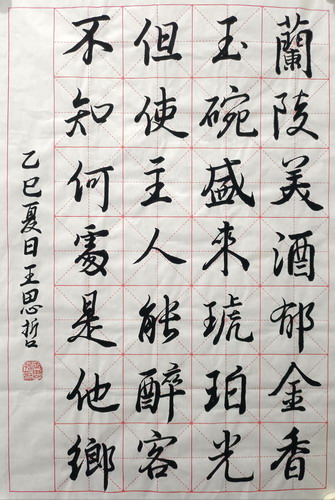 蘭陵美酒郁金香
玉碗盛來琥珀光
但使主人能醉客
不知何處是他鄉
乙巳夏日王思哲